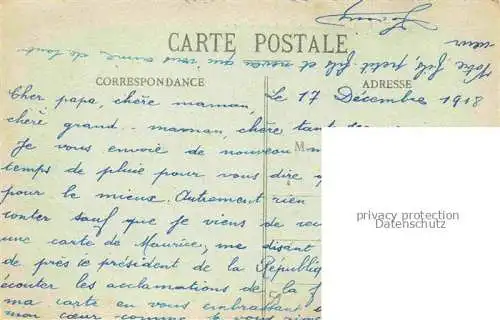 CARTE POSTALE
CORRESPONDANCE
ADRESSE
Votre fils, petit-fils et neveu qui vous aime de tout
cœur
Le 17 Décembre 1918
Cher papa, chère maman,
chère grand-maman, chère tante
Je vous envoie de nouveau
temps de pluie pour vous dire
pour le mieux. Autrement rien
conter sauf que je viens de
une carte de Maurice, me disant
de près le président de la République
écouter les acclamations de la
ma carte en vous embrassant
mon cœur comme je vous
privacy protection
Datenschutz